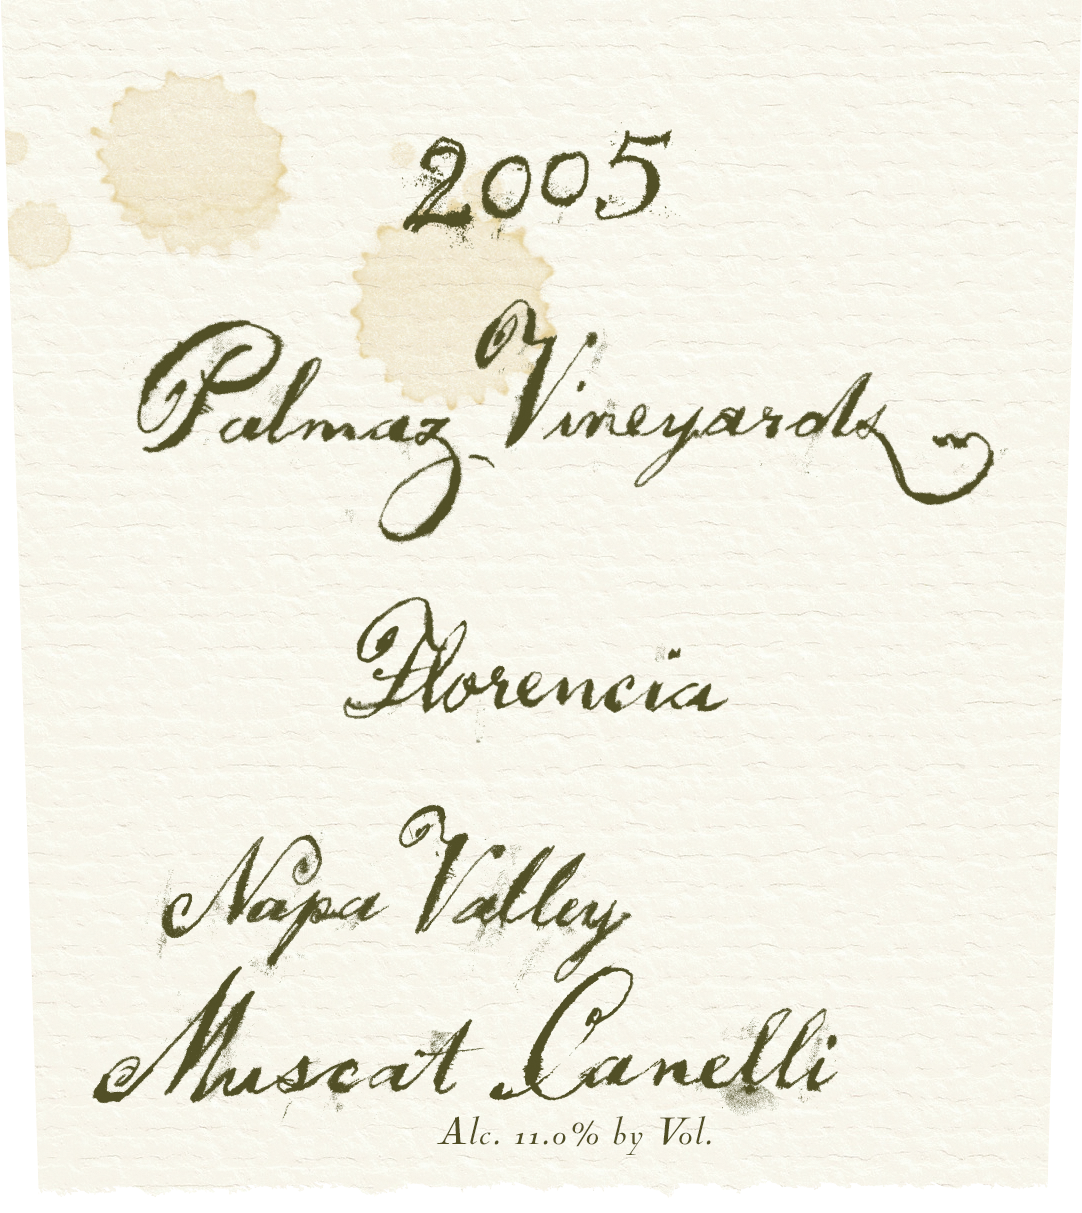 2005
Palmaz Vineyards
Florencia
Napa Valley
Muscat Canelli
Alc. 11.0% by Vol.